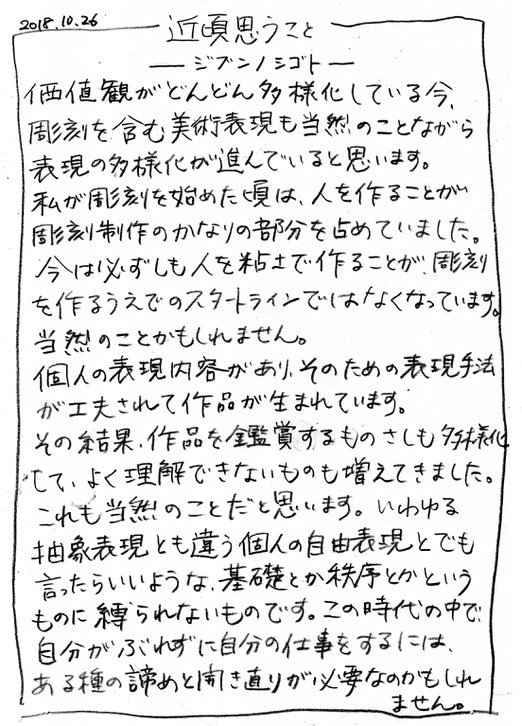 2018.10.26
近頃思うこと
―ジブンノシゴト―
価値観がどんどん多様化している今、
彫刻を含む美術表現も当然のことながら
表現の多様化が進んでいると思います。
私が彫刻を始めた頃は、人を作ることが
彫刻制作のかなりの部分を占めていました。
今は必ずしも人を粘土で作ることが、彫刻
を作るうえでのスタートラインではなくなっています。
当然のことかもしれません。
個人の表現内容があり、そのための表現手法
が工夫されて作品が生まれています。
その結果、作品を鑑賞するものさしも多様化
して、よく理解できないものも増えてきました。
これも当然のことだと思います。いわゆる
抽象表現とも違う個人の自由表現とでも
言ったらいいような、基礎とか秩序とかという
ものに縛られないものです。この時代の中で、
自分がぶれずに自分の仕事をするには、
ある種の諦めと開き直りが必要なのかもしれ
ません。